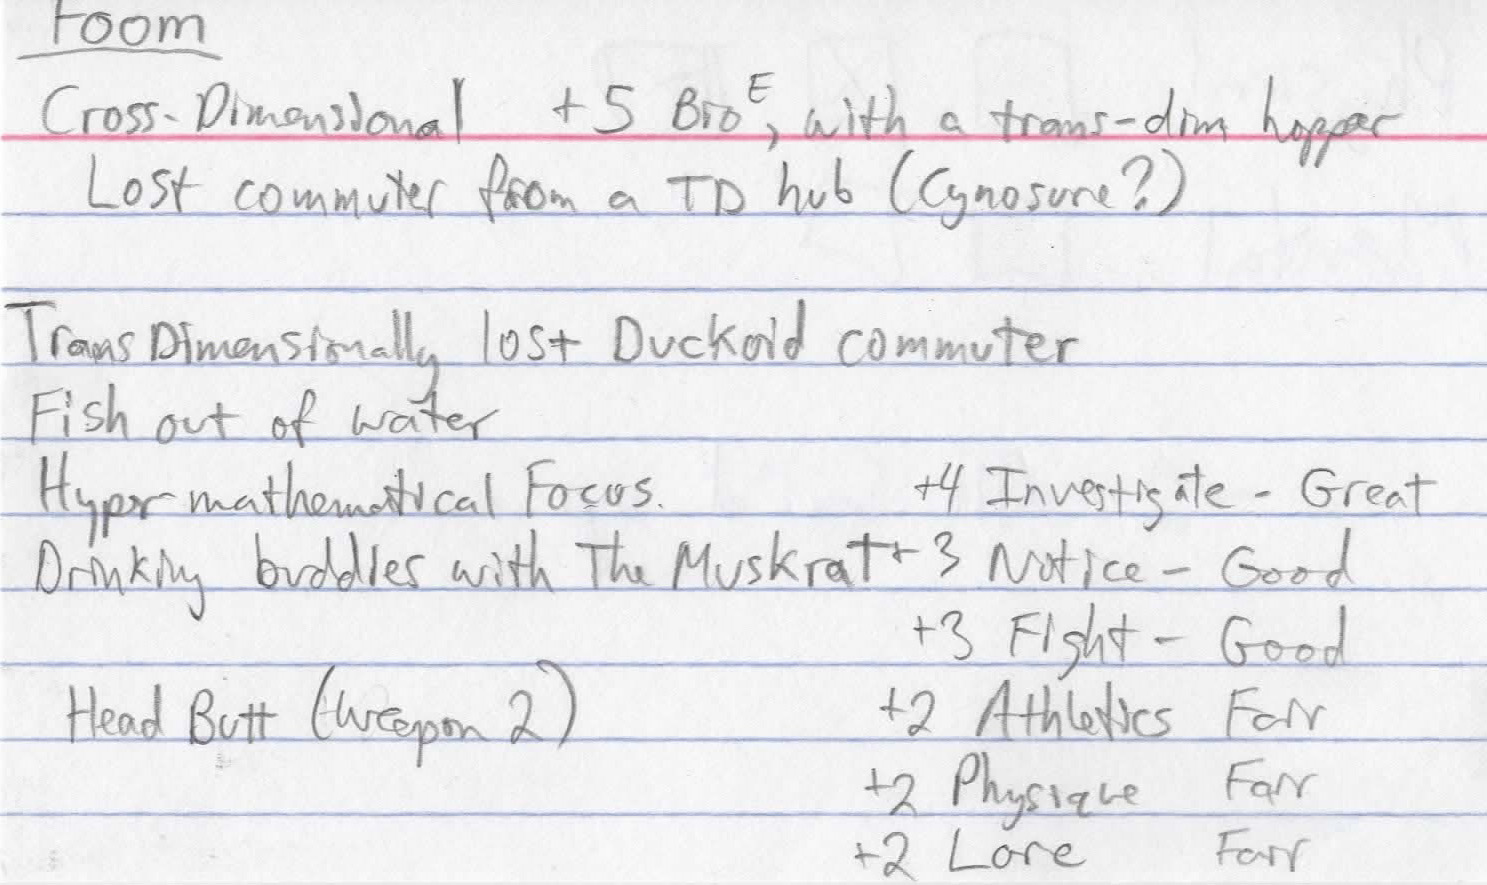 Foom
Cross-Dimensional +5 Bio^E, with a trans-dim hopper
Lost commuter from a TD hub (Cynosure?)
Trans Dimensionally lost Duckoid commuter
Fish out of water
Hyper mathematical Focus. +4 Investigate - Great
Drinking buddies with The Muskrat +3 Notice - Good
+3 Fight - Good
Head Butt (Weapon 2) +2 Athletics Fair
+2 Physique Fair
+2 Lore Fair